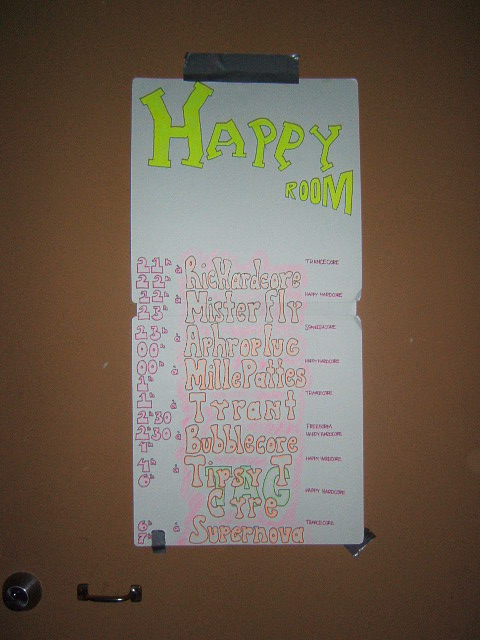 HAPPY
ROOM
21h à 22h RicHardcore TRANCECORE
22h à 23h Mister Fly HAPPY HARDCORE
23h 00h Aphropluc
00h à 1h MillePattes HAPPY HARDCORE
1h à 2h30 Tyrant TRANCECORE
2h30 à 4h Bubblecore FREEFORM HAPPY HARDCORE
4h à 6h Tipsy T HAPPY HARDCORE
Cyre HAPPY HARDCORE
6h à 7h Supernova TRANCECORE